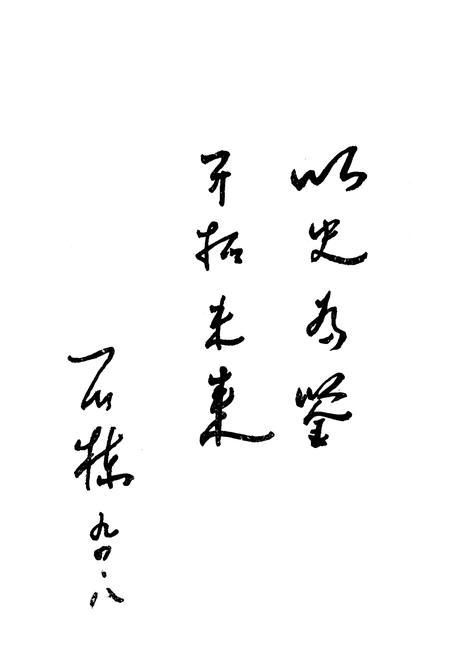 以史为鉴
开拓未来
石栋
九四·八